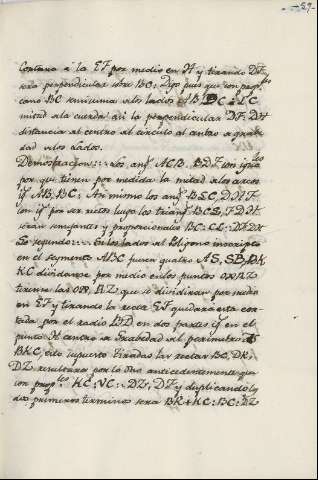 29.
Cortara à la EF por medio en H y tirando DF
sera perpendicular sobre BC: Digo pues que son prop.les
como BC semisuma à los lados AB, BC à LC
mitad à la cuerda asi la perpendicular DF, DH
distancia al centro al circulo al centro à grabe
dad à los Lados.
Demostracion Los ang.s ACB, BDF son iguales
por que tienen por medida la mitad à los arcos
ig.s AB, BC; Asi mismo los ang.s BLC, DHF
son ig.s por ser rectos luego los triang.s BCL, FDH
seran semejantes y proporcionales BC: CL:: DF: DH
Lo segundo Si los lados al Poligono inscripto
en el segmento ABC fueren quatro AS, SB, BK,
KC dividanse por medio en los puntos
tirense las que se dividiran por medio
en EF y tirando la recta EF quedara esta cor-
tada por el radio BD en dos partes ig.s en el
punto H centro à Grabedad al perimetro
BKC, esto supuesto tiradas las rectas BC, DK,
DZ resultara por lo dho anteccedentemente que
son prop.les KC: VC:: DZ; DT y duplicando los
dos primeros terminos sera BK+KC: BC: DZ